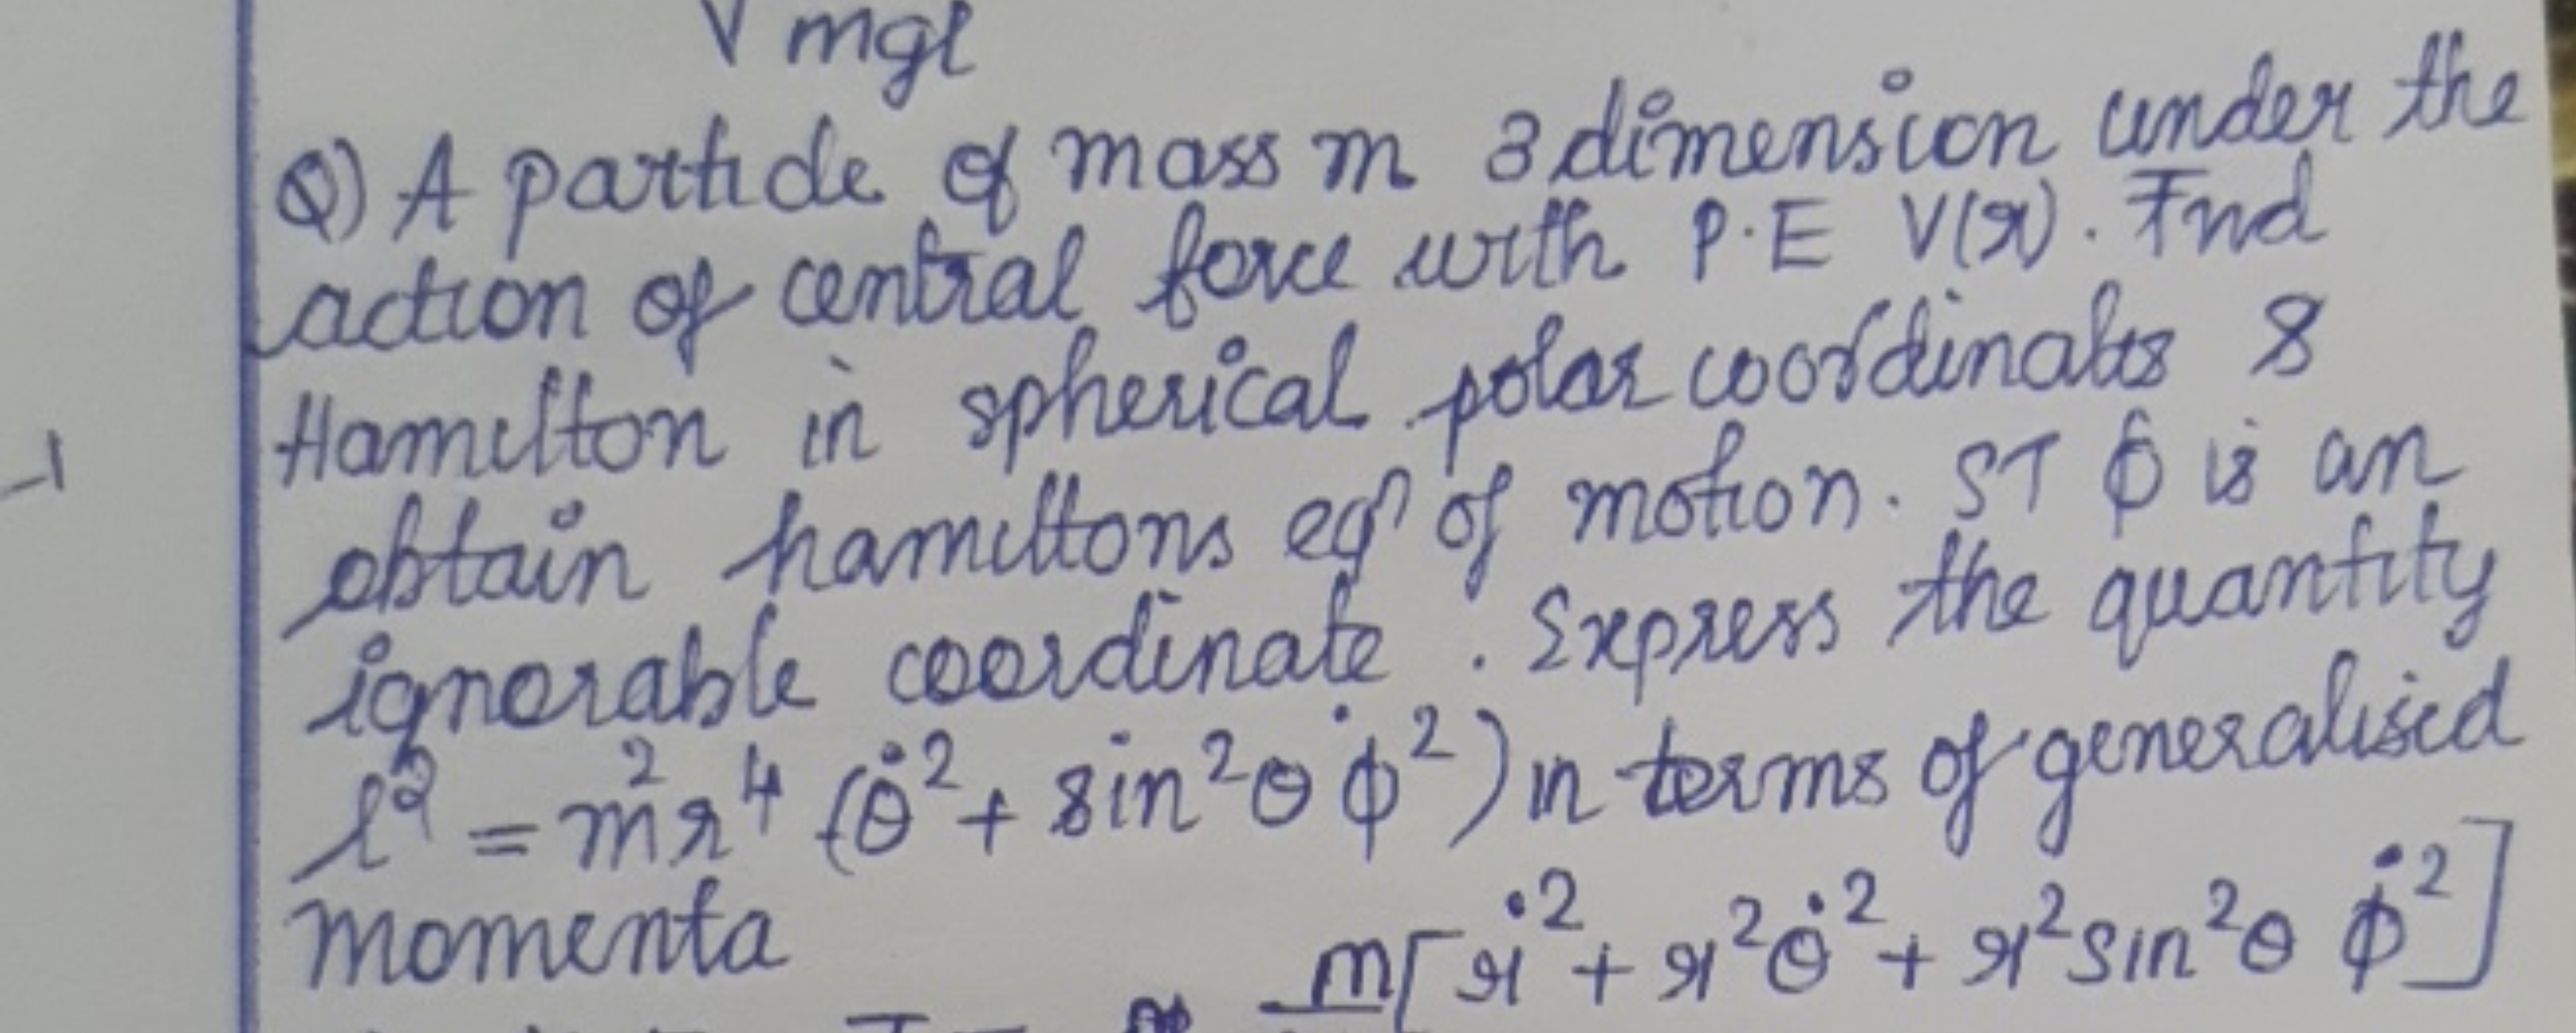 √mgl
Q) A particle of mass m 3 dimension under the
action of central force with P.E V(r). Find
Hamilton in spherical polar coordinates &
obtain hamiltons eqⁿ of motion. ST ϕ is an
ignorable coordinate. Express the quantity
l² = m²r⁴ (θ̇² + sin²θ ϕ̇²) in terms of generalised
momenta
m[ṙ² + r²θ̇² + r²sin²θ ϕ̇²]